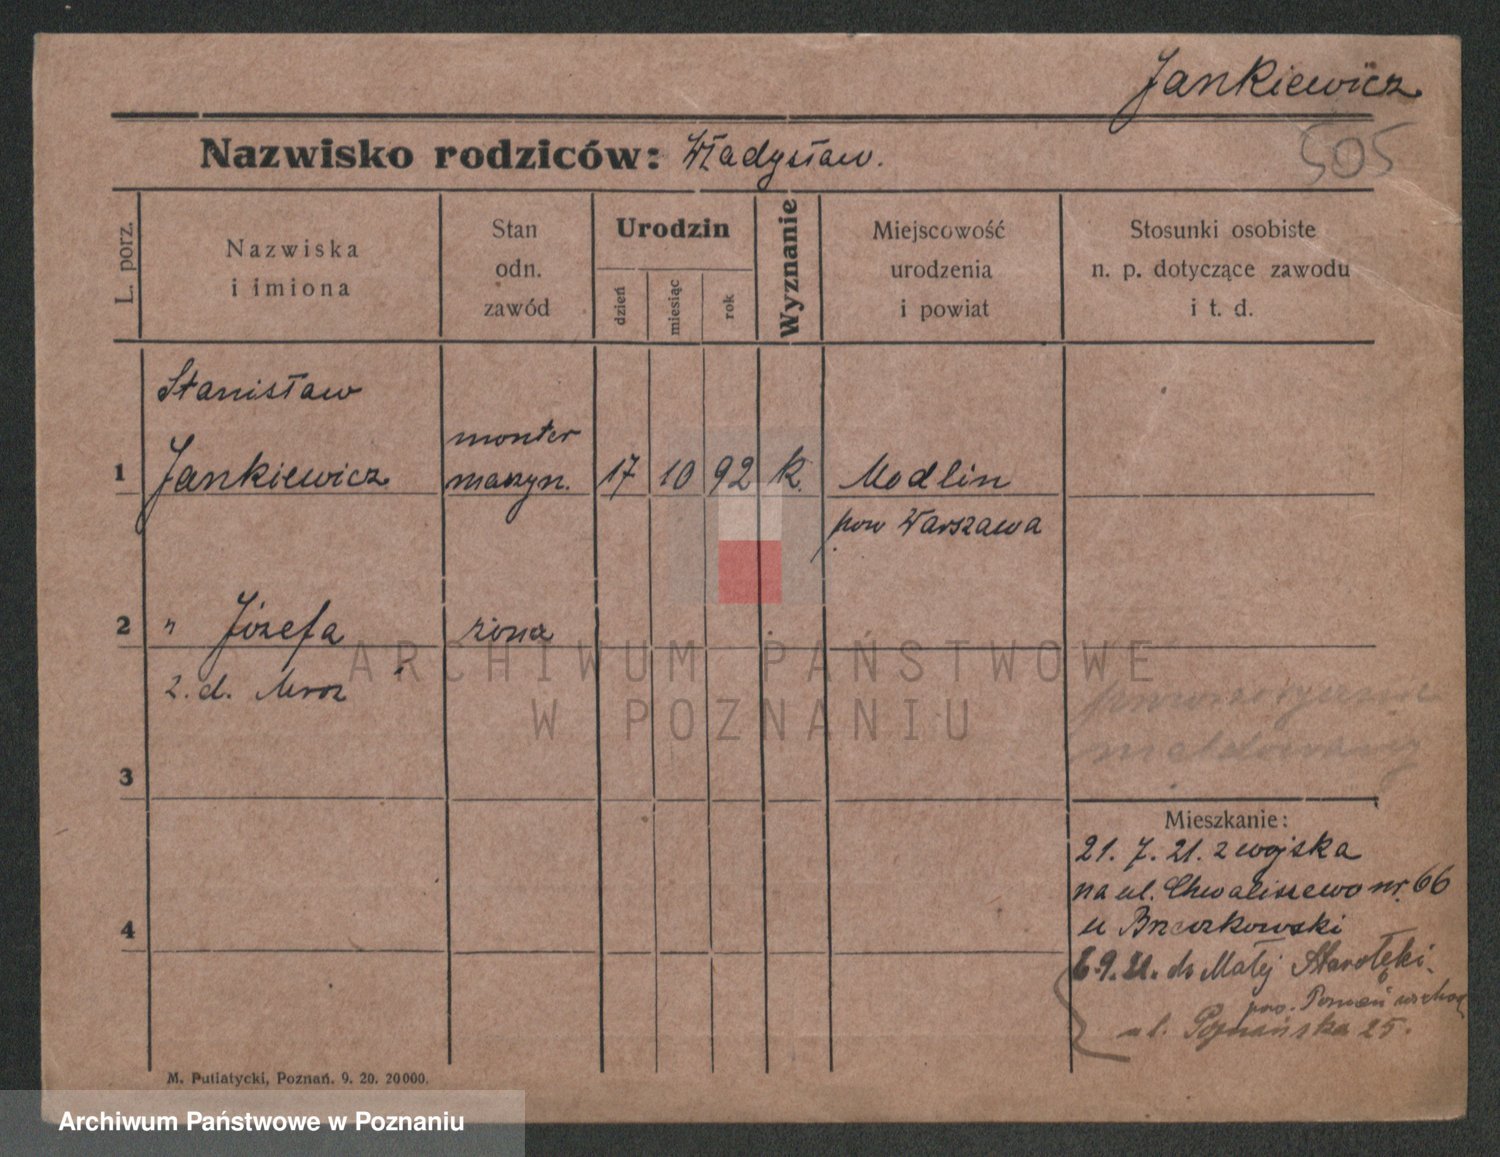 Jankiewicz
505
Nazwisko rodziców: Władysław.
L. porz.
Nazwiska
i imiona
Stan
odn.
zawód
Urodzin
dzień
miesiąc
rok
Wyznanie
Miejscowość
urodzenia
i powiat
Stosunki osobiste
n. p. dotyczące zawodu
i t. d.
Stanisław
monter
1 Jankiewicz maszyn. 17 10 92 k. Modlin
pow Warszawa
2 " Józefa żona
z. d. Mroz
ARCHIWUM PAŃSTWOWE
W POZNANIU
3
Mieszkanie:
21. 7. 21. z wojska
na ul. Chwaliszewo nr. 66
4
u
9. 21. do Małej Starołęki
pow. Poznań wschod
ul. Poznańska 25.
M. Putiatycki, Poznań. 9. 20. 20000.
Archiwum Państwowe w Poznaniu